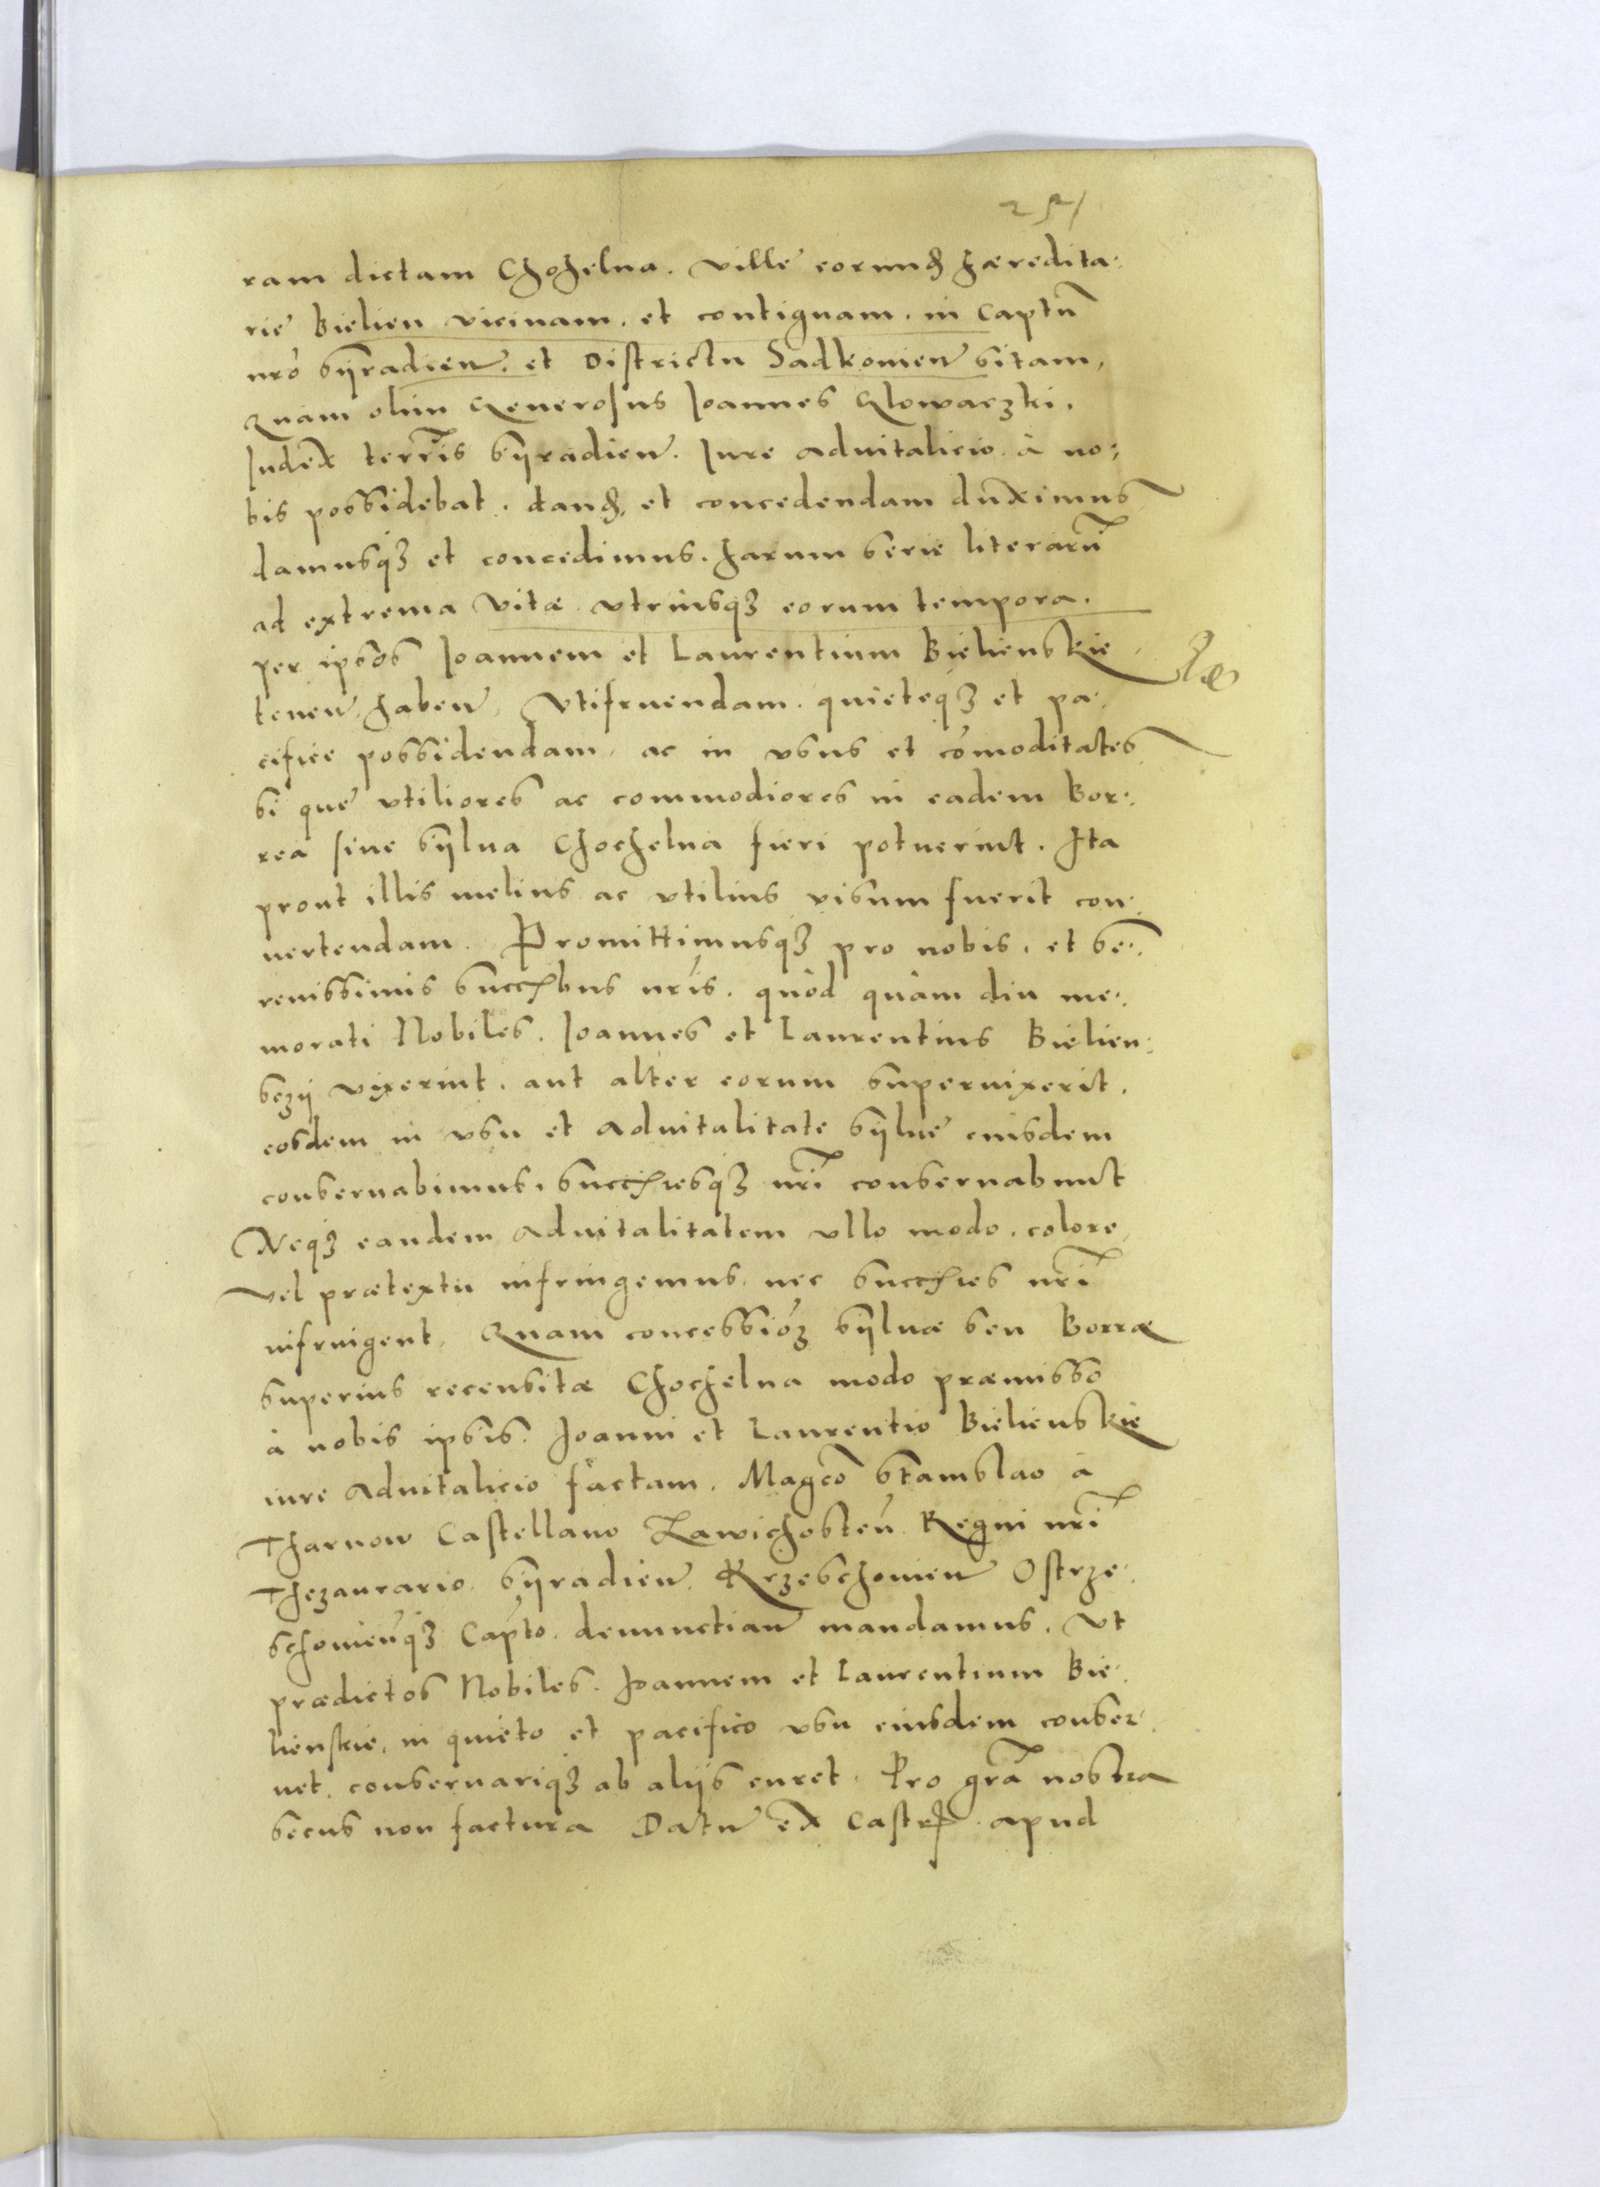 ram dictam Chochelna. ville eorund hæredita:
rie Bielien vicinam. et contiguam. in Captū
nrō Syradien. et Districtu Sadkouien sitam,
Quam olim Generosus Joannes Glowaczki.
Judex terrīs Syradien. Jure aduitalicio à no:
bis possidebat. dand, et concedendam duximus
damusq3 et concedimus. harum serie literarū
ad extrema Vitæ vtriusq3 eorum tempora.
per ipsos Joannem et Laurentium Bielienskie
tenen haben, Vtifruendam. quieteq3 et pa:
cifice possidendam, ac in vsus et cōmoditates
si que vtiliores ac commodiores in eadem Bor:
rea siue sylua Chochelna fieri potuerint. Ita
prout illis melius ac vtilius visum fuerit con:
uertendam. Promittimusq3 pro nobis, et se:
renissimis succribus nrīs. quòd quàm diu me:
morati Nobiles. Joannes et Laurentius Bielien:
sczij vixerint, aut alter eorum superuixerit.
eosdem in vsu et Aduitalitate sylue eiusdem
conseruabimus, succresq3 nrī conseruabunt
Neq3 eandem Aduitalitatem vllo modo, colore,
vel prætextu infringemus, nec succres nrī
infringent. Quam concessiō3 syluæ seu Borræ
superius recensitæ Chochelna modo præmisso
à nobis ipsis. Joanni et Laurentio Bielienskie
iure Aduitalicio factam, Magcō Stanislao à
Tharnow Castellano Zawichosteñ Regni nrī
Thezaurario. Syradien. Krzeschouien Ostrze:
schouieñq3 Capto. denunctian mandamus. Vt
prædictos Nobiles. Joannem et Laurentium Bie:
lienskie, in quieto et pacifico vsu eiusdem conser:
uet. conseruariq3 ab alijs curet. Pro grā nostra
secus non factura Datu ex Castr. apud